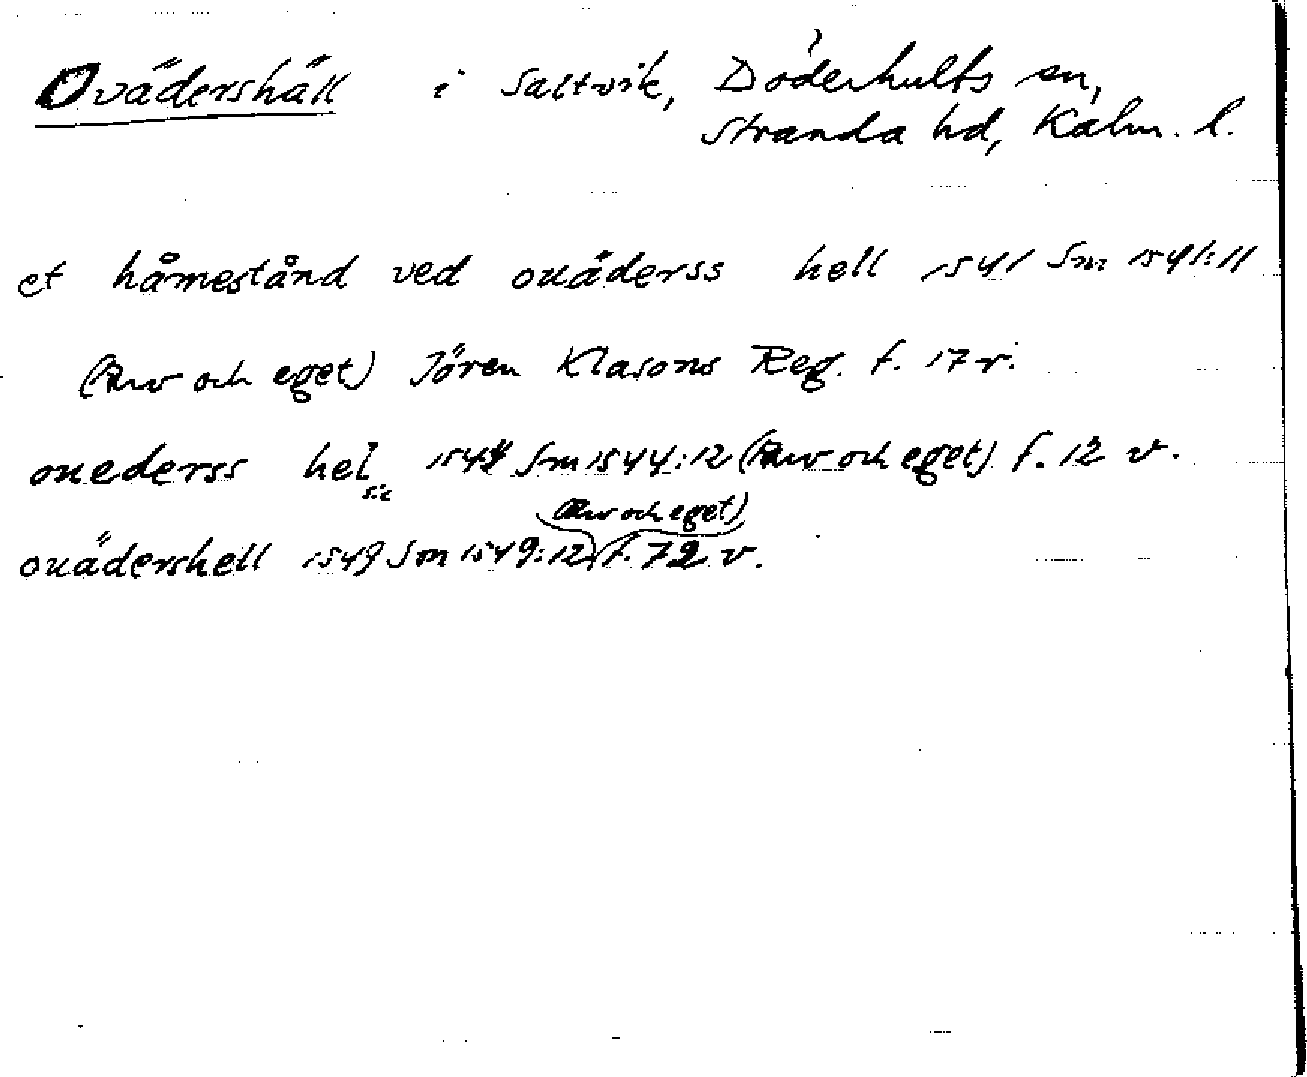 Ovädershäll i Saltvik, Döderhults sn,
Stranda hd, Kalm. l.
et håmestånd ved ouäderss hell 1541 Sm 1541:11
(Rw och eget) Jören Klasons Reg. f. 17 r.
ouederss hel 1544 Sm 1544:12 (Rw och eget) f. 12 v.
sic
(Rw och eget)
ouädershell 1549 Sm 1549:12 f. 72 v.